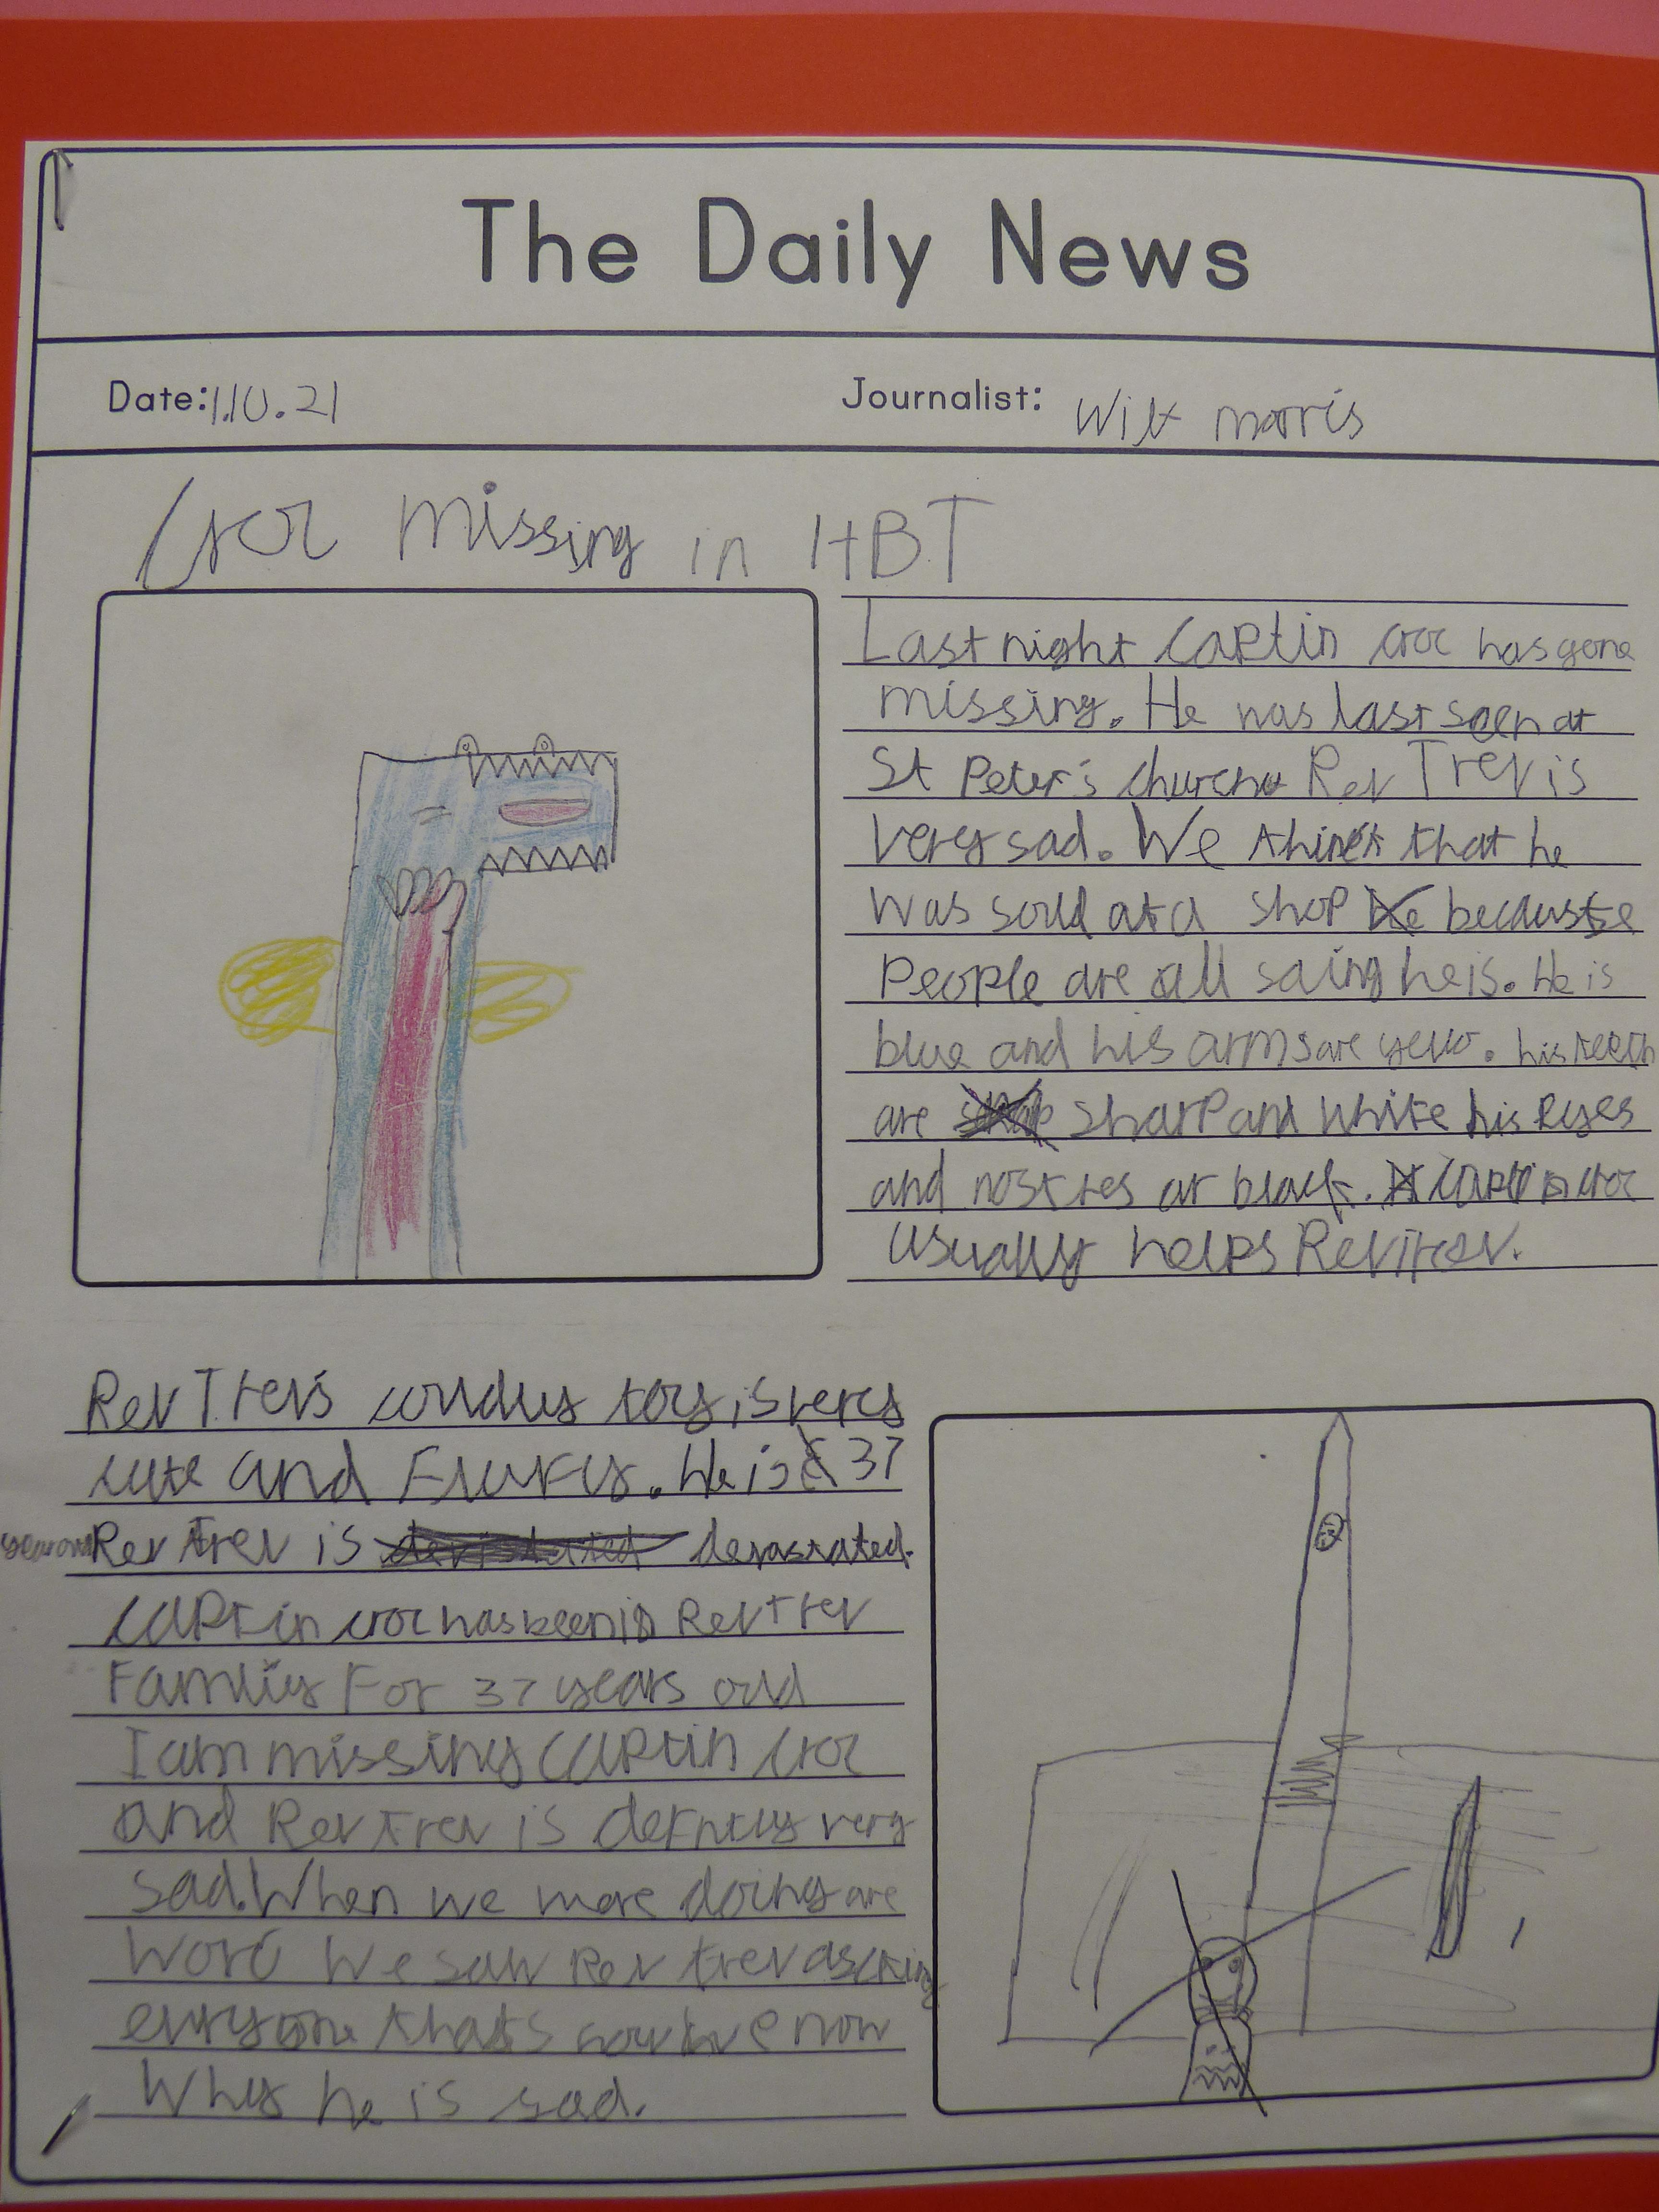 The Daily News
Date: 1.10.21
Journalist: morris
Croc missing in HBT
Last night Captin croc has gone
missing. He was last seen at
St Peter's church Rev Trev is
very sad. We think that he
was sould at a shop because
People are all saing he is. He is
blue and his arms are yello. his teeth
are sharp and white his eyes
and nostres ar black. Captin croc
usually helps Rev trev.
Rev Trev's cudley toy is very
cute and Flufy. He is 37
Rev Trev is devastated.
captin croc has been in Rev Trev
Family For 37 years old
I am missing Captin Croc
and Rev Trev is defntley very
sad. When we more doing are
word we saw Rev trev ascking
evryone thats how we now
Why he is sad.